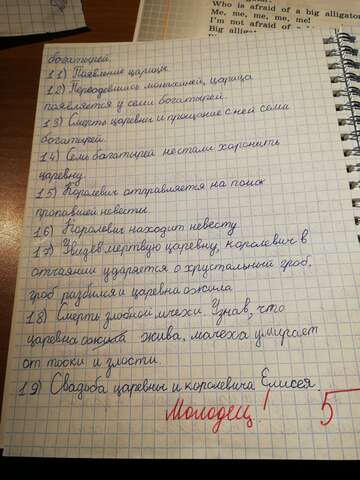 Who is afraid of a big alligator
Me, me, me, me, me!
I'm not afraid of a big
Big alligat
богатырей.
11) Появление царицы.
12) Переодевшись монахиней, царица
появляется у семи богатырей.
13) Смерть царевны и прощание с ней семи
богатырей.
14) Семь богатырей не стали хоронить
царевну.
15) Королевич отправляется на поиск
пропавшей невесты
16) Королевич находит невесту
17) Увидев мертвую царевну, королевич в
отчаянии ударяется о хрустальный гроб,
гроб разбился и царевна ожила
18) Смерть злобной мчехи. Узнав, что
царевна жива, мачеха умирает
от тоски и злости.
19) Свадьба царевны и короневича Елисея.
Молодец! 5